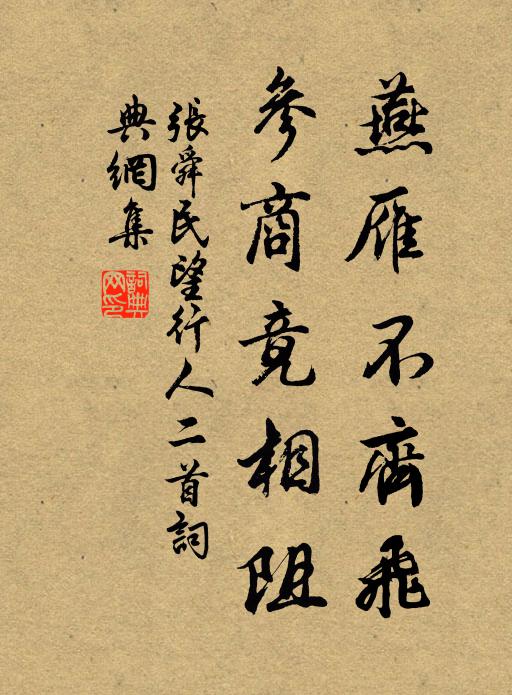 燕雁不齊飛
參商竟相阻
張舜民望行人二首詞
典網集
詞典網印